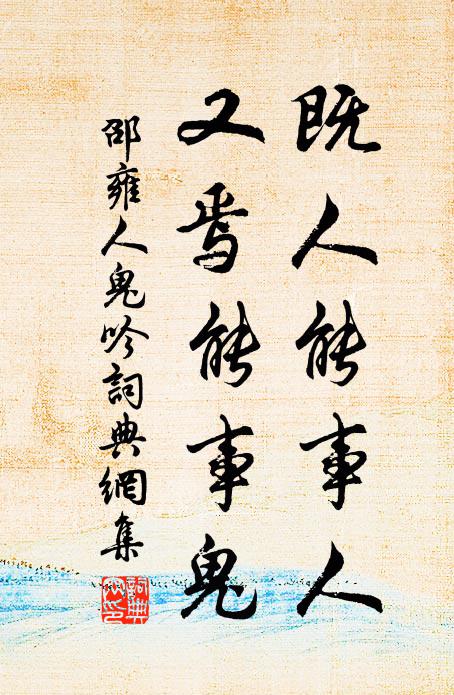 既人能事人
又焉能事鬼
邵雍人鬼吟詞典網集